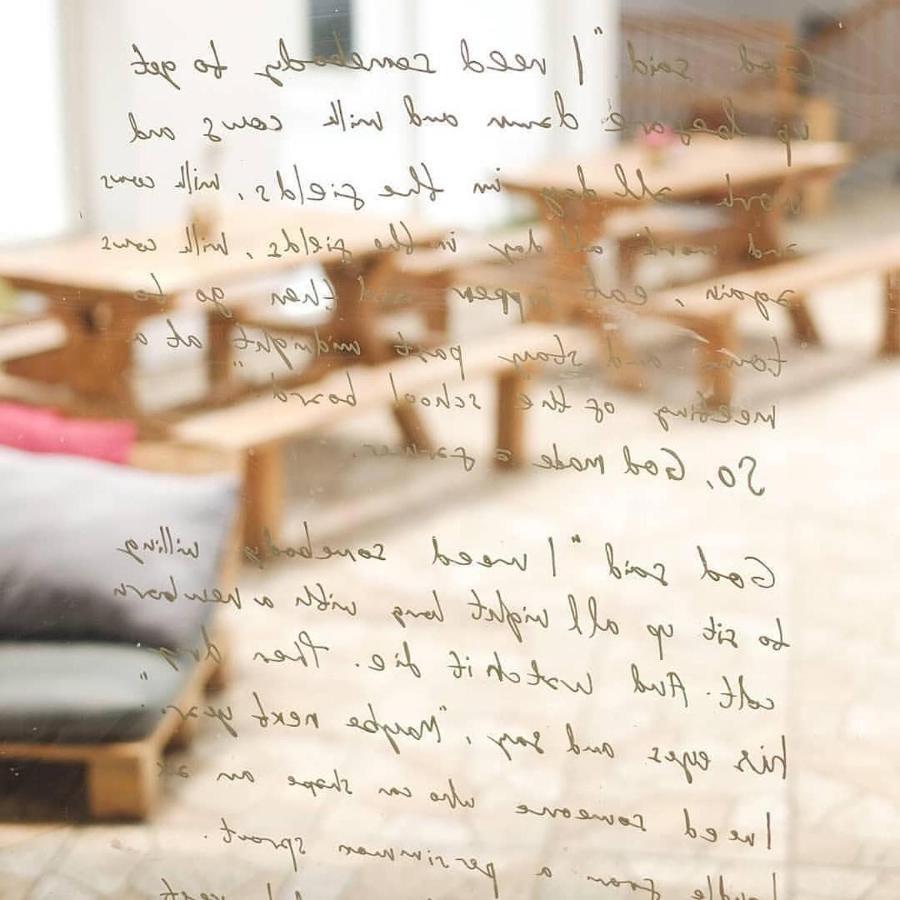 God said "I need somebody to get
up before dawn and milk cows and
work all day in the fields, milk cows
and work all day in the fields, milk cows
again, eat supper and then go to
town and stay past midnight" at a
meeting of the school board
So, God made a farmer.
God said "I need somebody willing
to sit up all night long with a newborn
colt. And watch it die. Then dry
his eyes and say, "Maybe next year."
I need someone who can shape an ax
handle from a persimmon sprout.